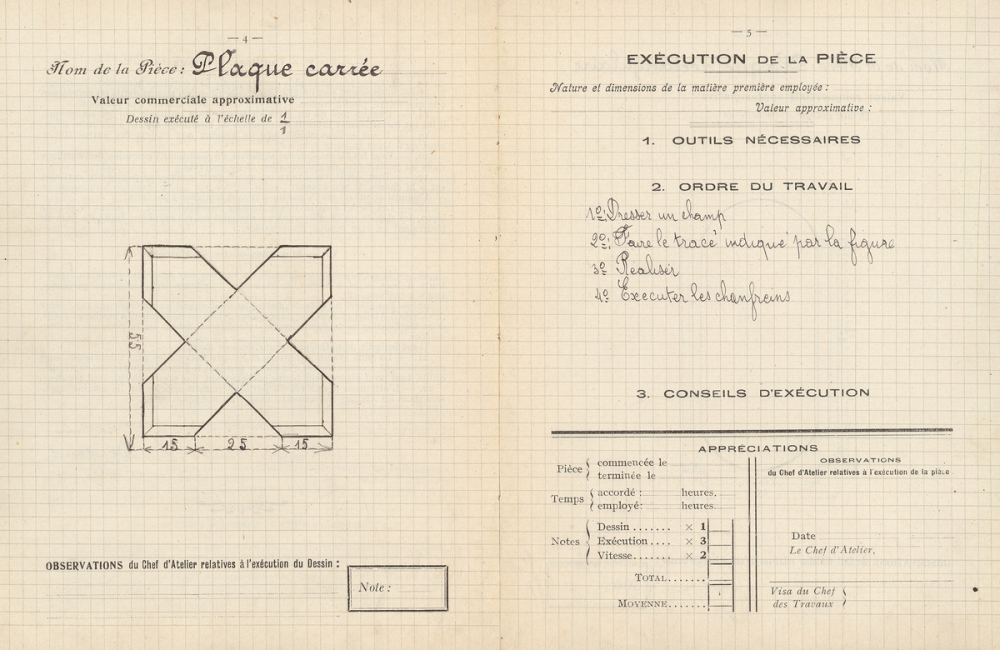 — 4 —
Nom de la Pièce : Plaque carrée
Valeur commerciale approximative
Dessin exécuté à l'échelle de 1/1
55
15 25 15
OBSERVATIONS du Chef d'Atelier relatives à l'exécution du Dessin :
Note :
— 5 —
EXÉCUTION DE LA PIÈCE
Nature et dimensions de la matière première employée :
Valeur approximative :
1. OUTILS NÉCESSAIRES
2. ORDRE DU TRAVAIL
1º; Dresser un champ
2º; Faire le tracé indiqué par la figure
3º Réaliser
4º Executer les chanfreins
3. CONSEILS D'EXÉCUTION
APPRÉCIATIONS
Pièce { commencée le
terminée le
Temps { accordé : heures.
employé : heures.
Notes { Dessin ....... × 1
Exécution .... × 3
Vitesse ...... × 2
TOTAL.......
MOYENNE.......
OBSERVATIONS
du Chef d'Atelier relatives à l'exécution de la pièce
Date
Le Chef d'Atelier,
Visa du Chef
des Travaux